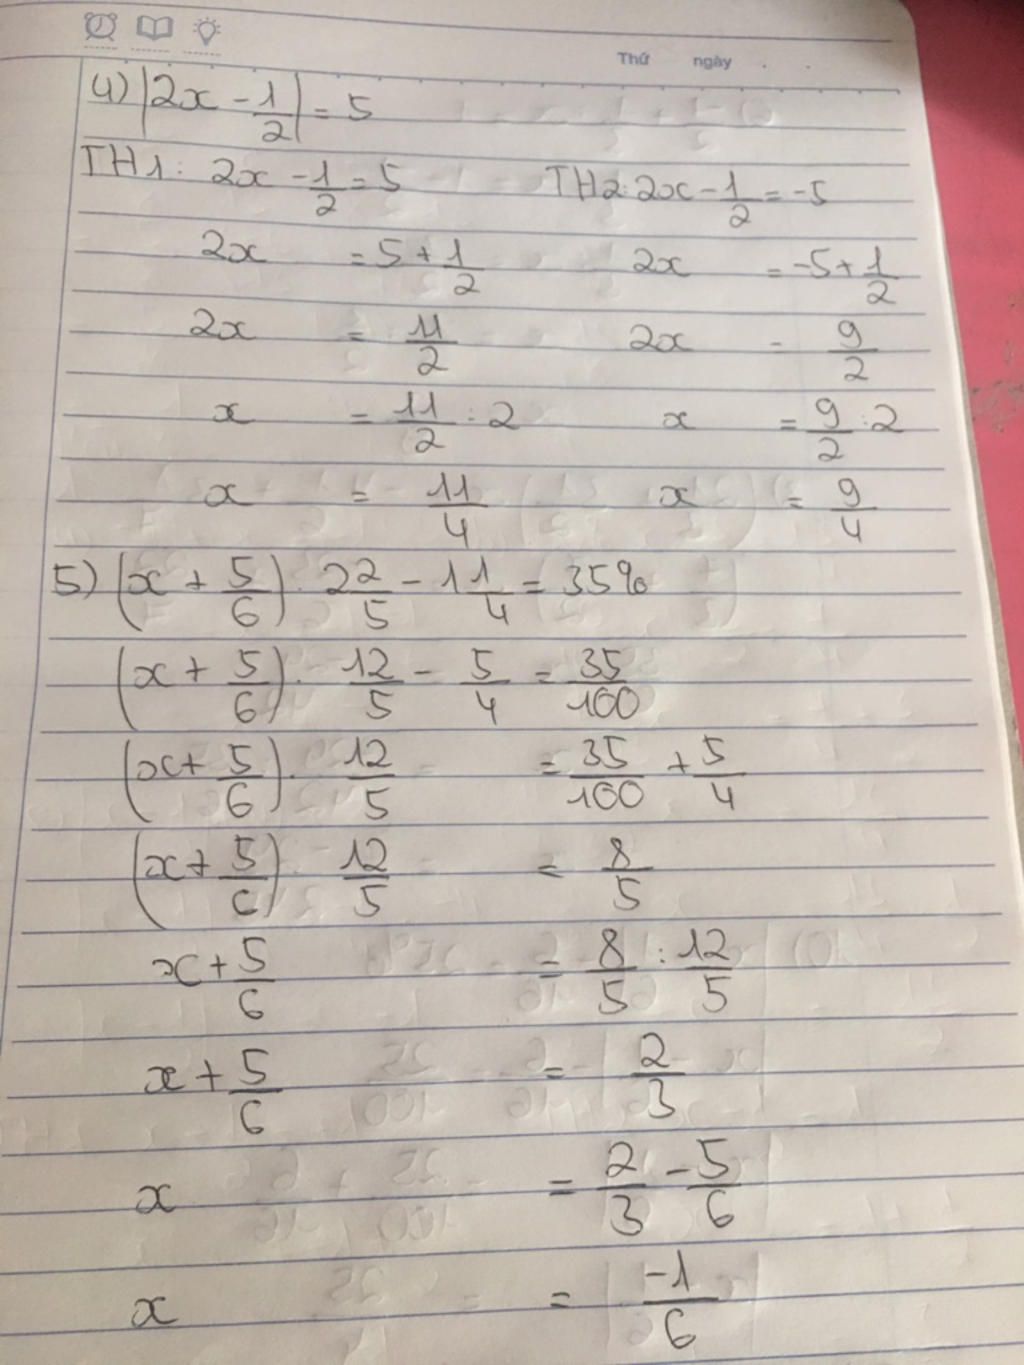 Thứ ngày
4) |2x - 1/2| = 5
TH1: 2x - 1/2 = 5 TH2: 2x - 1/2 = -5
2x = 5 + 1/2 2x = -5 + 1/2
2x = 11/2 2x = 9/2
x = 11/2 : 2 x = 9/2 : 2
x = 11/4 x = 9/4
5) (x + 5/6) . 2 2/5 - 1 1/4 = 35%
(x + 5/6) . 12/5 - 5/4 = 35/100
(x + 5/6) . 12/5 = 35/100 + 5/4
(x + 5/6) . 12/5 = 8/5
x + 5/6 = 8/5 : 12/5
x + 5/6 = 2/3
x = 2/3 - 5/6
x = -1/6